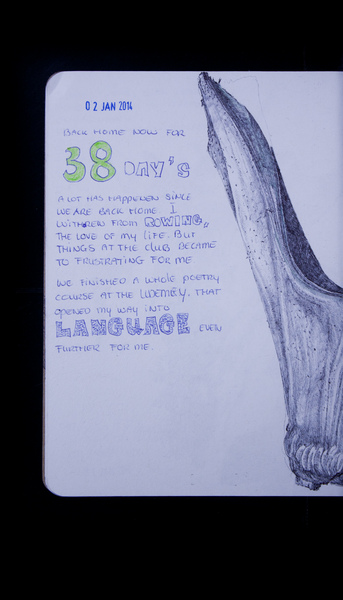 02 JAN 2014
BACK HOME NOW FOR
38 DAY'S
A LOT HAS HAPPENEN SINCE
WE ARE BACK HOME I
WITHDREW FROM ROWING,,
THE LOVE OF MY LIFE. BUT
THINGS AT THE CLUB BECAME
TO FRUSTRATING FOR ME
WE FINISHED A WHOLE POETRY
COURSE AT THE THAT
OPENED MY WAY INTO
LANGUAGE EVEN
FURTHER FOR ME.